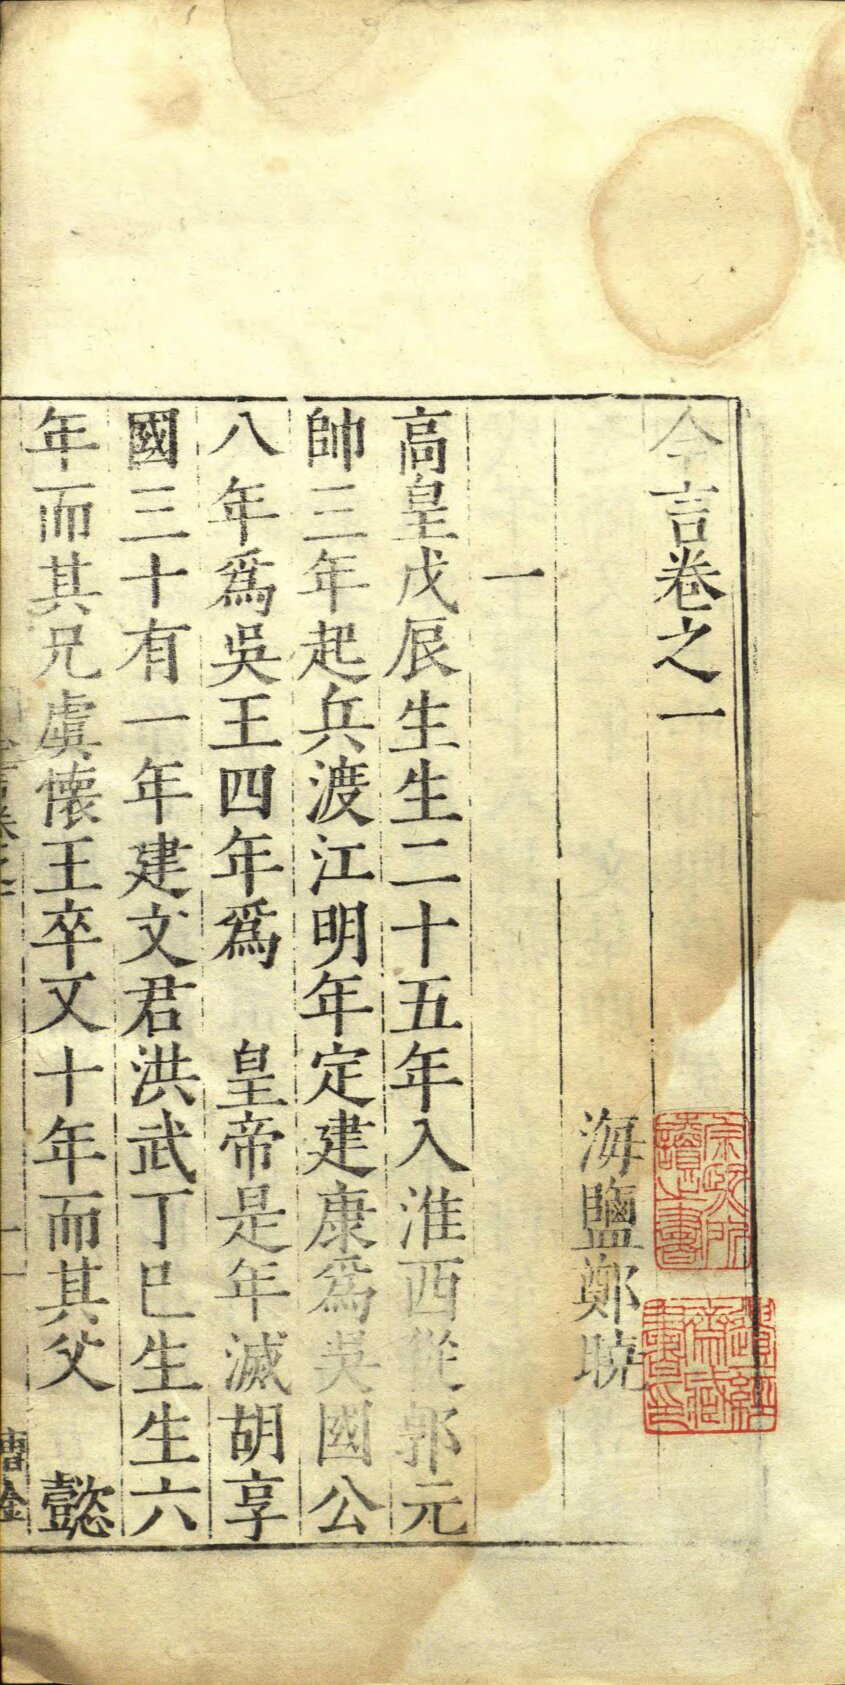 今言卷之一
海鹽鄭曉
一
高皇戊辰生生二十五年入淮西從郭元
帥三年起兵渡江明年定建康爲吳國公
八年爲吳王四年爲　皇帝是年滅胡享
國三十有一年建文君洪武丁巳生生六
年而其兄虞懷王卒又十年而其父　懿